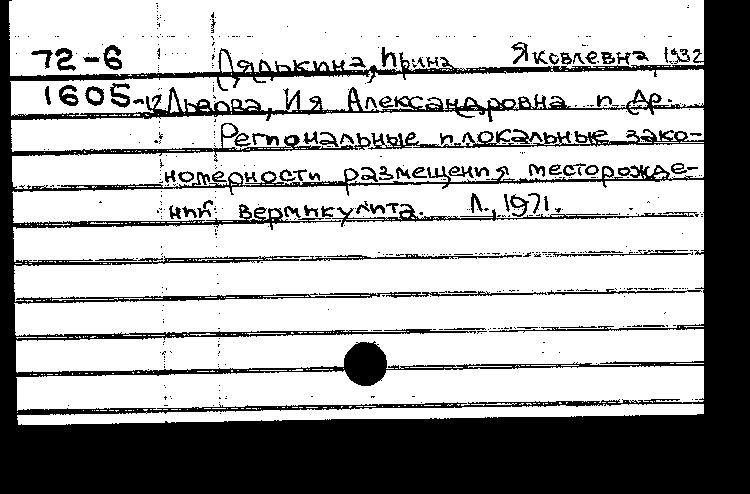 72-6 [Лялькина, Ирина Яковлевна, 1932
1605-12 Львова, Ия Александровна и др.
Региональные и локальные зако-
номерности размещения месторожде-
ний вермикулита. Л., 1971.